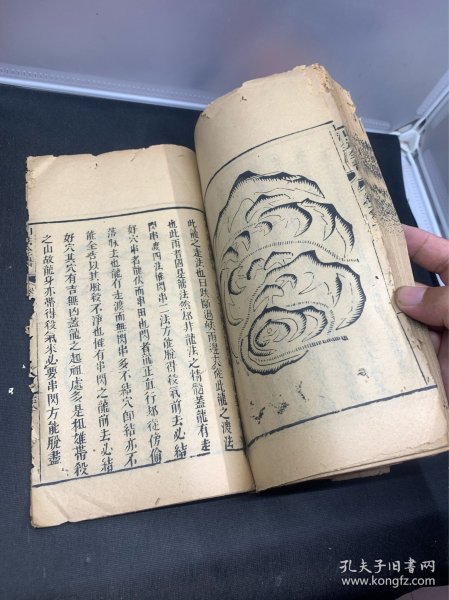 此龍之走法也曰跌斷過峽兩邊大從此龍之渡法
也此兩者固是龍法然却非龍法之情蓋龍有走
閃串渡四法惟閃串二法方能脫得殺氣前去必結
好穴串者龍伏而串田也閃者龍正直行却從傍偷
落脉去也龍有走渡而無閃串多不結穴即結亦不
能全吉以其脫殺不淨也惟有串閃之龍前去必結
好穴其穴有吉無凶蓋龍之起頂處多是粗雄帶殺
之山故龍身亦帶得殺氣來必要串閃方能脫盡
孔夫子旧书网
www.kongfz.com